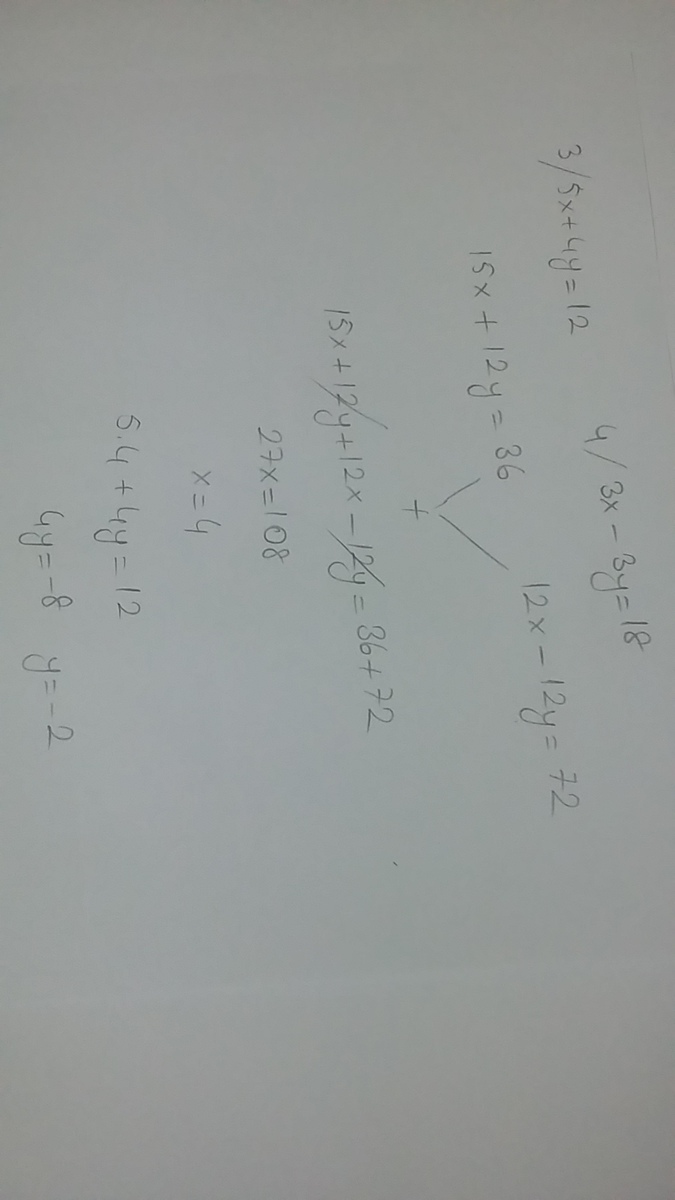 3/5x+4y=12 4/3x-3y=18
15x+12y=36 12x-12y=72
+
15x+12y+12x-12y=36+72
27x=108
x=4
5.4+4y=12
4y=-8 y=-2